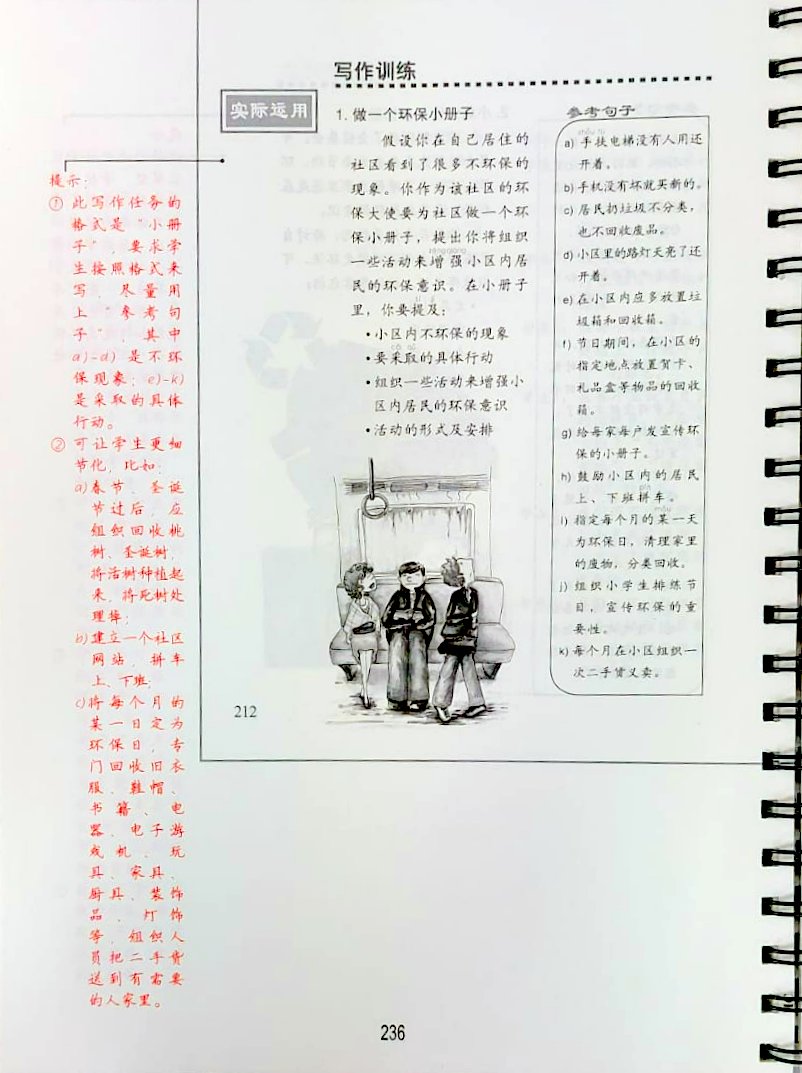 写作训练
实际运用
1. 做一个环保小册子
假设你在自己居住的
社区看到了很多不环保的
现象。你作为该社区的环
保大使要为社区做一个环
保小册子，提出你将组织
zēngqiáng
一些活动来增强小区内居
民的环保意识。在小册子
里，你要提及：
•小区内不环保的现象
•要采取的具体行动
•组织一些活动来增强小
区内居民的环保意识
•活动的形式及安排
参考句子
a) 手扶电梯没有人用还
开着。
b) 手机没有坏就买新的。
c) 居民扔垃圾不分类，
也不回收废品。
d) 小区里的路灯天亮了还
开着。
e) 在小区内应多放置垃
圾箱和回收箱。
f) 节日期间，在小区的
指定地点放置贺卡、
礼品盒等物品的回收
箱。
g) 给每家每户发宣传环
保的小册子。
h) 鼓励小区内的居民
上、下班拼车。
i) 指定每个月的某一天
为环保日，清理家里
的废物，分类回收。
j) 组织小学生排练节
目，宣传环保的重
要性。
k) 每个月在小区组织一
次二手货义卖。
212
提示：
① 此写作任务的
格式是“小册
子”，要求学
生按照格式来
写，尽量用
上“参考句
子”，其中
a)-d) 是不环
保现象；e)-k)
是采取的具体
行动。
② 可让学生更细
节化，比如：
a)春节、圣诞
节过后，应
组织回收桃
树、圣诞树，
将活树种植起
来，将死树处
理掉；
b)建立一个社区
网站，拼车
上、下班；
c)将每个月的
某一日定为
环保日，专
门回收旧衣
服、鞋帽、
书籍、电
器、电子游
戏机、玩
具、家具、
厨具、装饰
品、灯饰
等，组织人
员把二手货
送到有需要
的人家里。
236